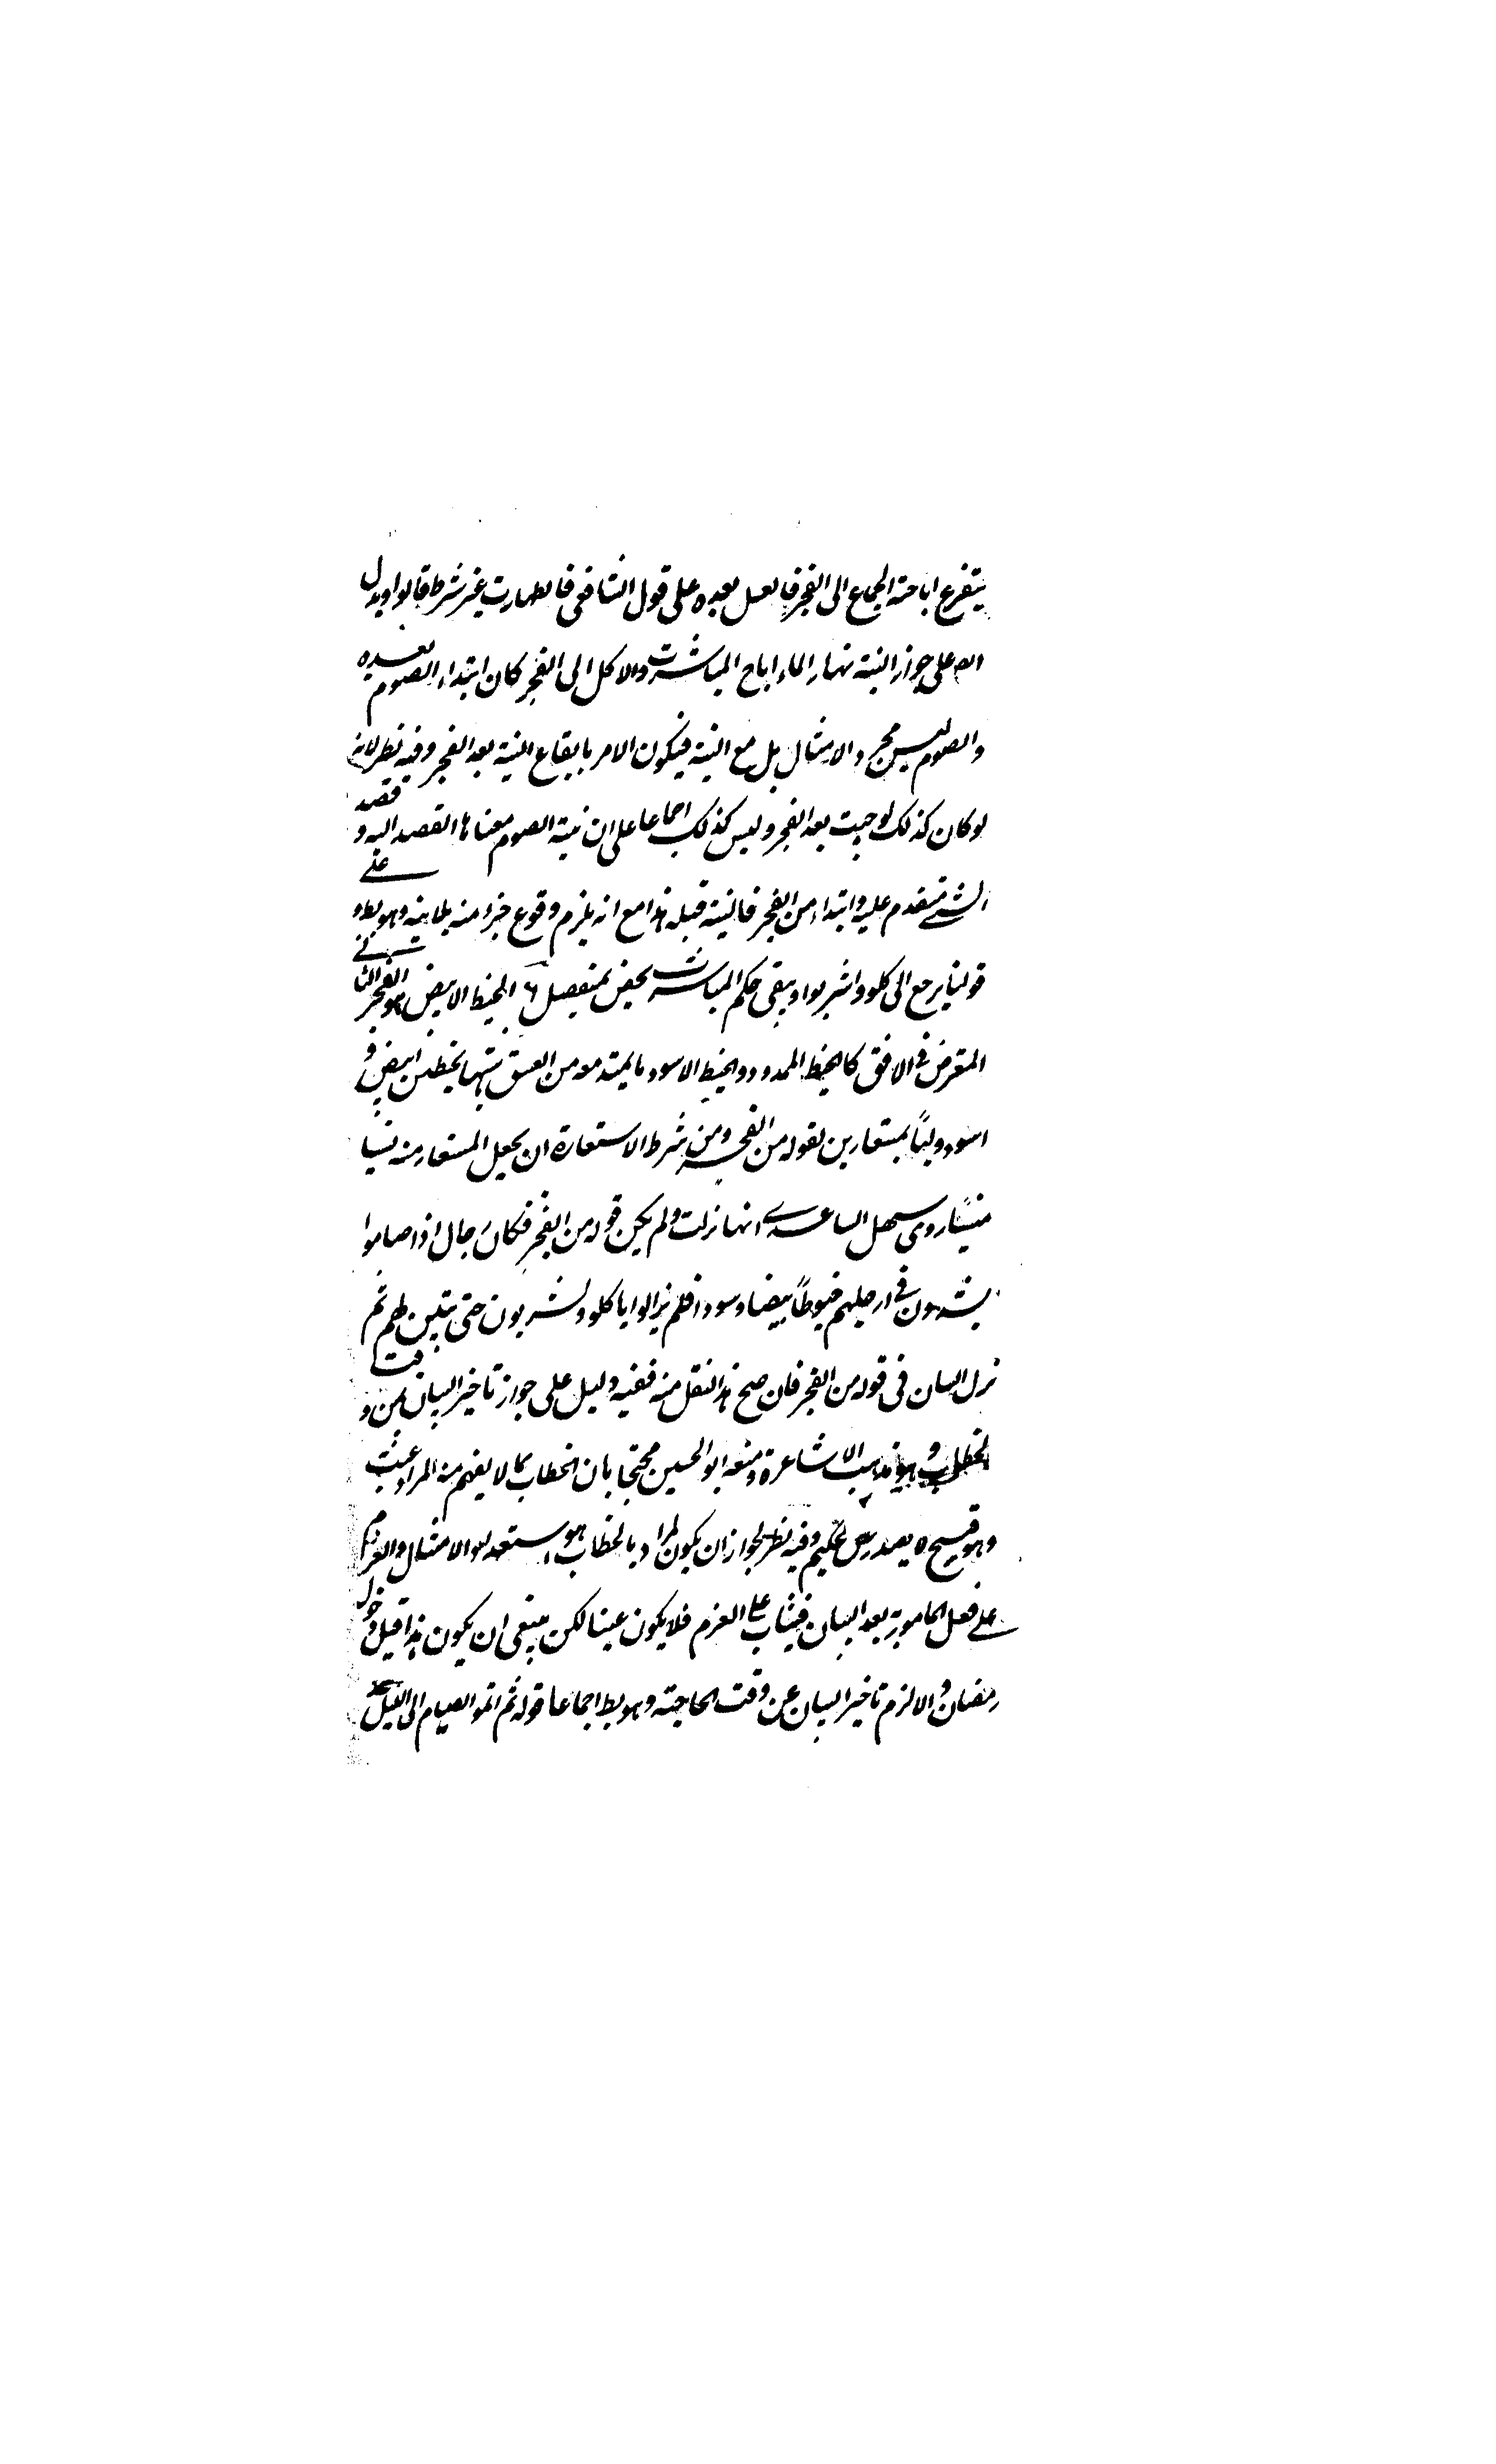 يتفرع اباحة الجماع الى الفجر فالغسل بعده على قول الشافعى فالطهارت غير شرط قالوا ويدل
ايضا على جواز النية نهارا لما اباح المباشرت والاكل الى الفجر كان ابتداء الصوم بعده
والصوم ليس مجرد الامتثال بل مع النية فيكون الامر بايقاع النية بعد الفجر وفيه نظر لانه
لو كان كذلك لوجبت بعد الفجر وليس كذلك اجماعا على ان نية الصوم معناها القصد اليه وقصد
الشئ متقدم عليه وابتداءه من الفجر فالنية قبله هذا مع انه يلزم وقوع جزء منه بلا نية وهو بط وعلى
قولنا يرجع الى كلوا واشربوا ويبقى حكم المباشرت بمنفصل الخيط الابيض هو الفجر الثانى
المعترض فى الافق كالخيط الممدود والخيط الاسود ما يمتد معه من الغسق شبها بخيطين ابيض و
اسود وليسا بمستعارين لقوله من الفجر ومن شرط الاستعارة ان يجعل المستعار منه نسيا
منسيًا روى سهل الساعدى انها نزلت ولم يكن قوله من الفجر فكان رجال اذا صاموا
يشدون فى ارجلهم خيوطًا بيضا وسودا فلم يزالوا ياكلون ويشربون حتى يتبين لهم ثم
نزل البيان فى قوله من الفجر فان صح هذا النقل منه ففيه دليل على جواز تاخير البيان عن وقت
الخطاب وهو مذهب الاشاعرة ومنعه ابو الحسين محتجا بان الخطاب بما لا يفهم منه المراد عبث
وهو قبيح لا يصدر من الحكيم وفيه نظر لجواز ان يكون المراد بالخطاب هو استعداد الامتثال والعزم
على فعل المامور به بعد البيان فيثاب على العزم فلا يكون عبثا لكن ينبغى ان يكون هذا قبل دخول
رمضان والا لزم تاخير البيان عن وقت الحاجة وهو بط اجماعا قوله ثم اتموا الصيام الى الليل